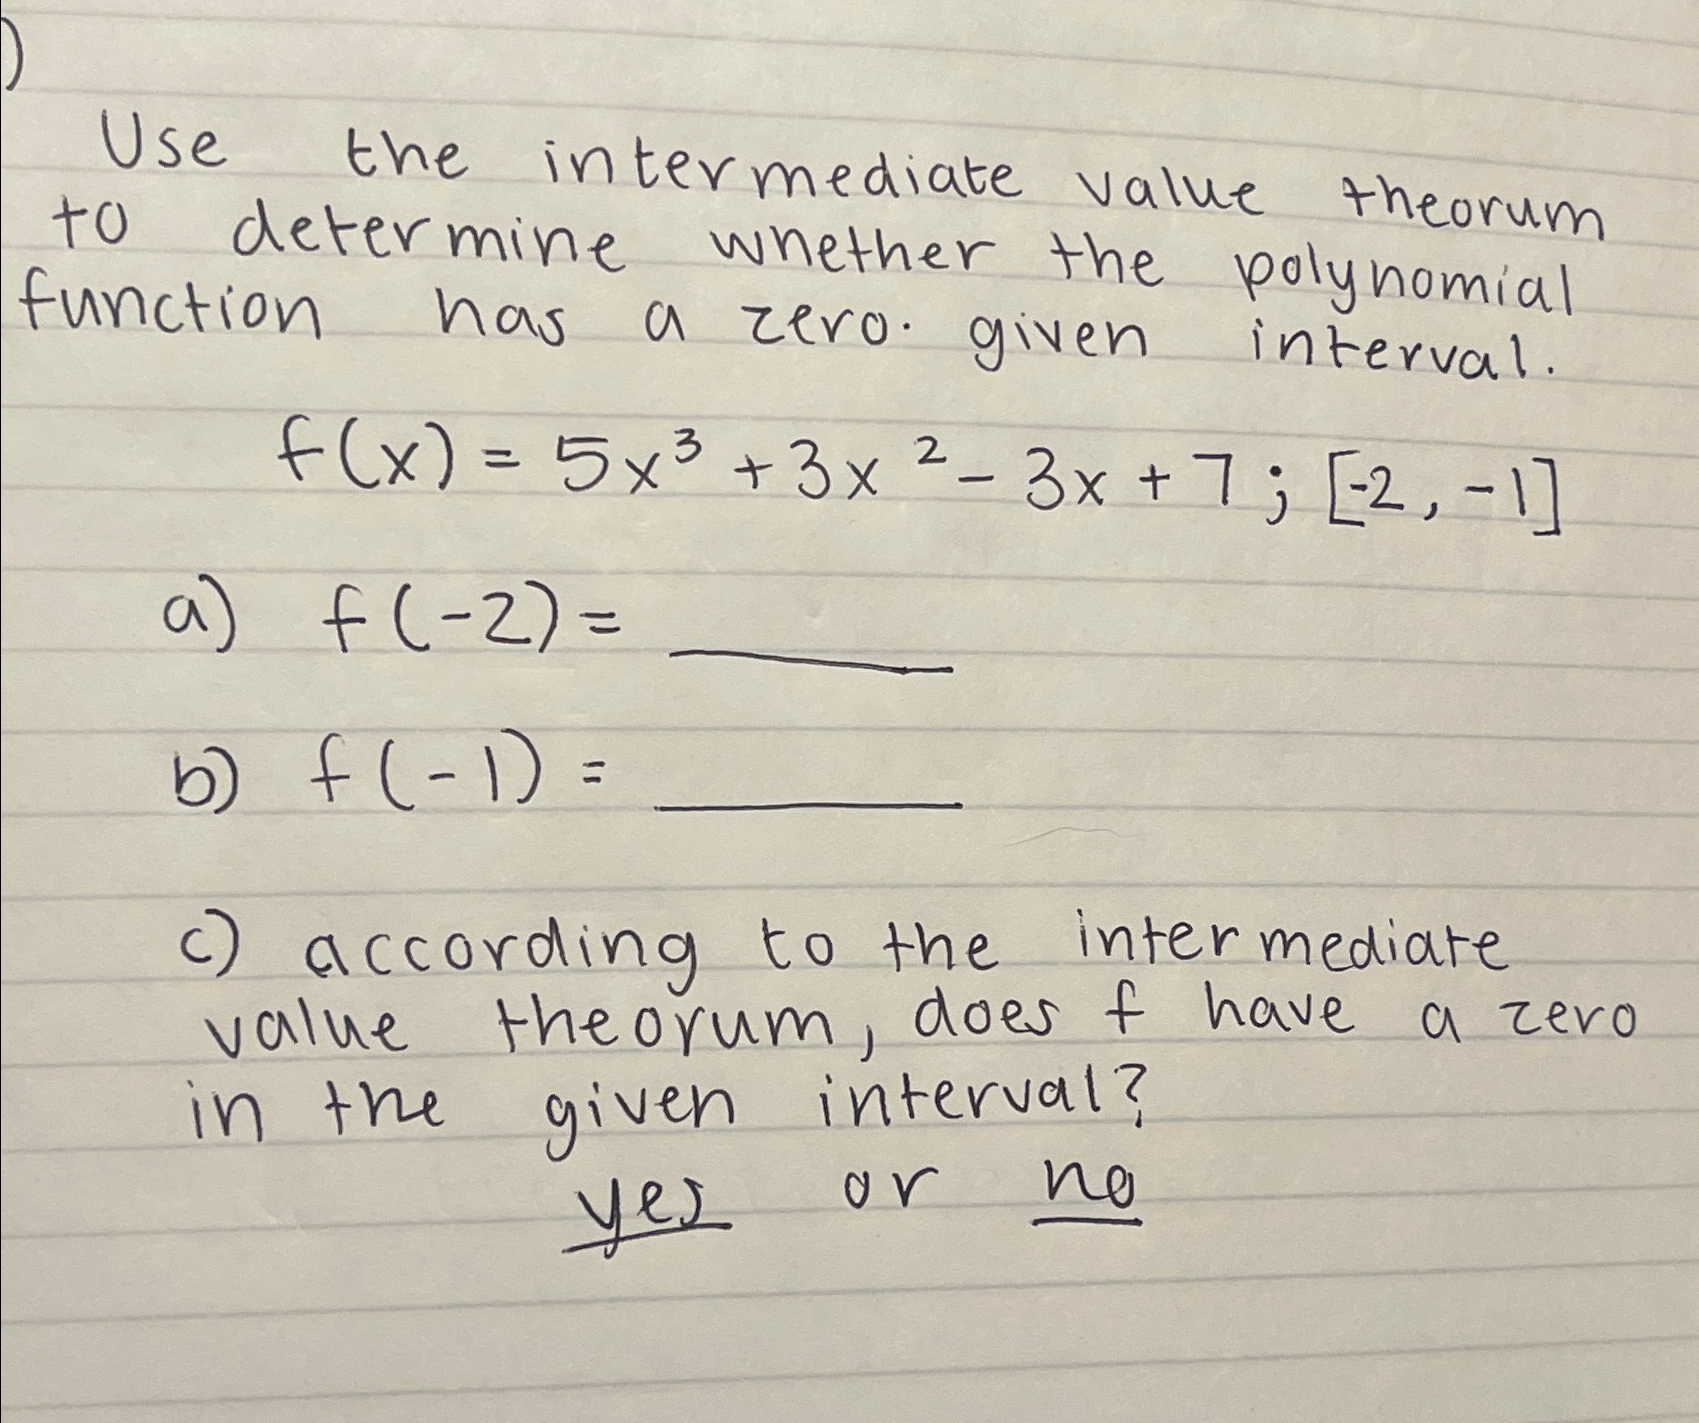 )
Use the intermediate value theorum
to determine whether the polynomial
function has a zero. given interval.
f(x) = 5x³ + 3x² - 3x + 7; [-2, -1]
a) f(-2) = ____
b) f(-1) = ____
c) according to the intermediate
value theorum, does f have a zero
in the given interval?
yes or no